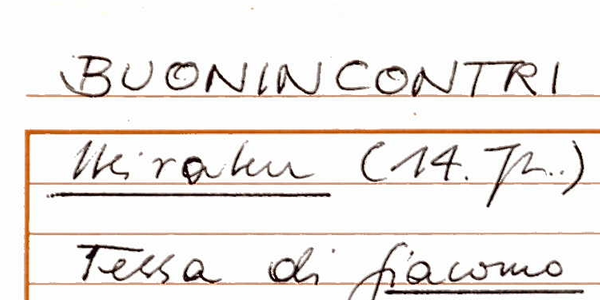 BUONINCONTRI
Heiraten (14. Jh.)
Tessa di Giacomo